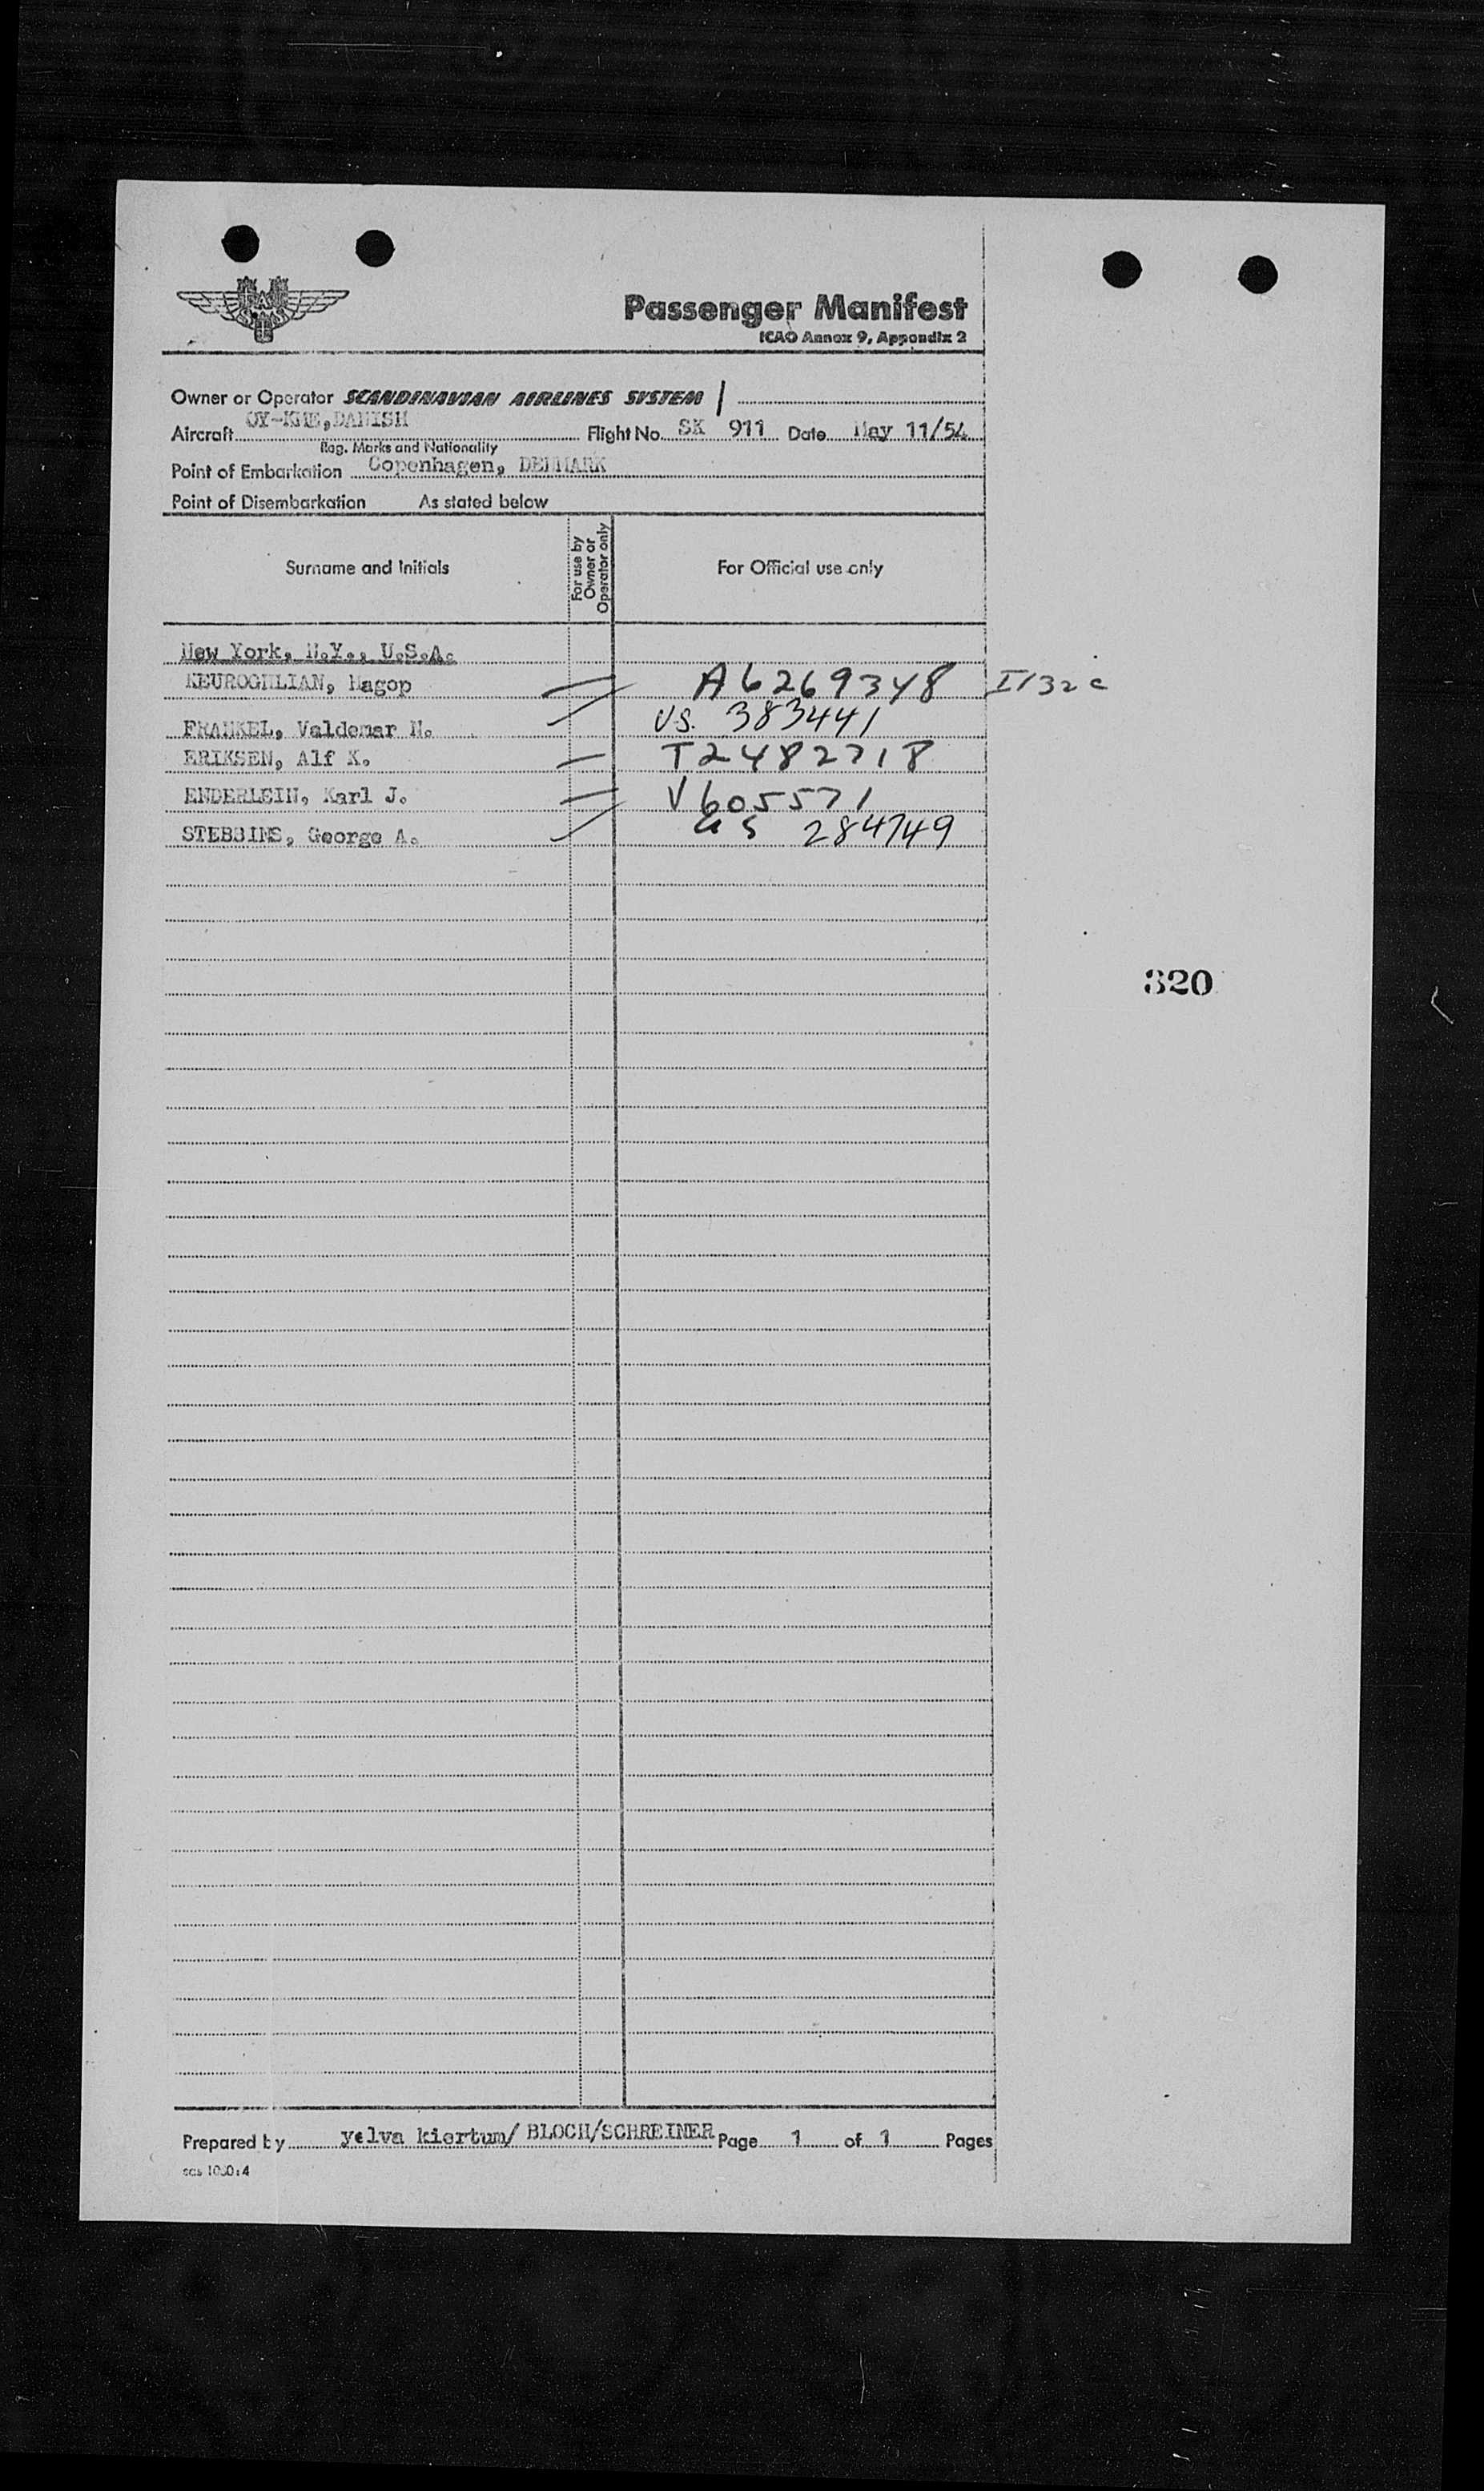 Passenger Manifest
ICAO Annex 9, Appendix 2
Owner or Operator SCANDINAVIAN AIRLINES SYSTEM
Aircraft OY-KME, DANISH Flight No. SK 911 Date May 11/54
Reg. Marks and Nationality
Point of Embarkation Copenhagen, DENMARK
Point of Disembarkation As stated below
Surname and Initials For use by Owner or Operator only For Official use only
New York, N.Y., U.S.A.
KEUROGHLIAN, Hagop A6269348 I132c
FRANKEL, Valdemar N. US. 383441
ERIKSEN, Alf K. T2482718
ENDERLEIN, Karl J. V605571
STEBBINS, George A. US 284749
320
Prepared by yelva kiertum/ BLOCH/SCHREINER Page 1 of 1 Pages